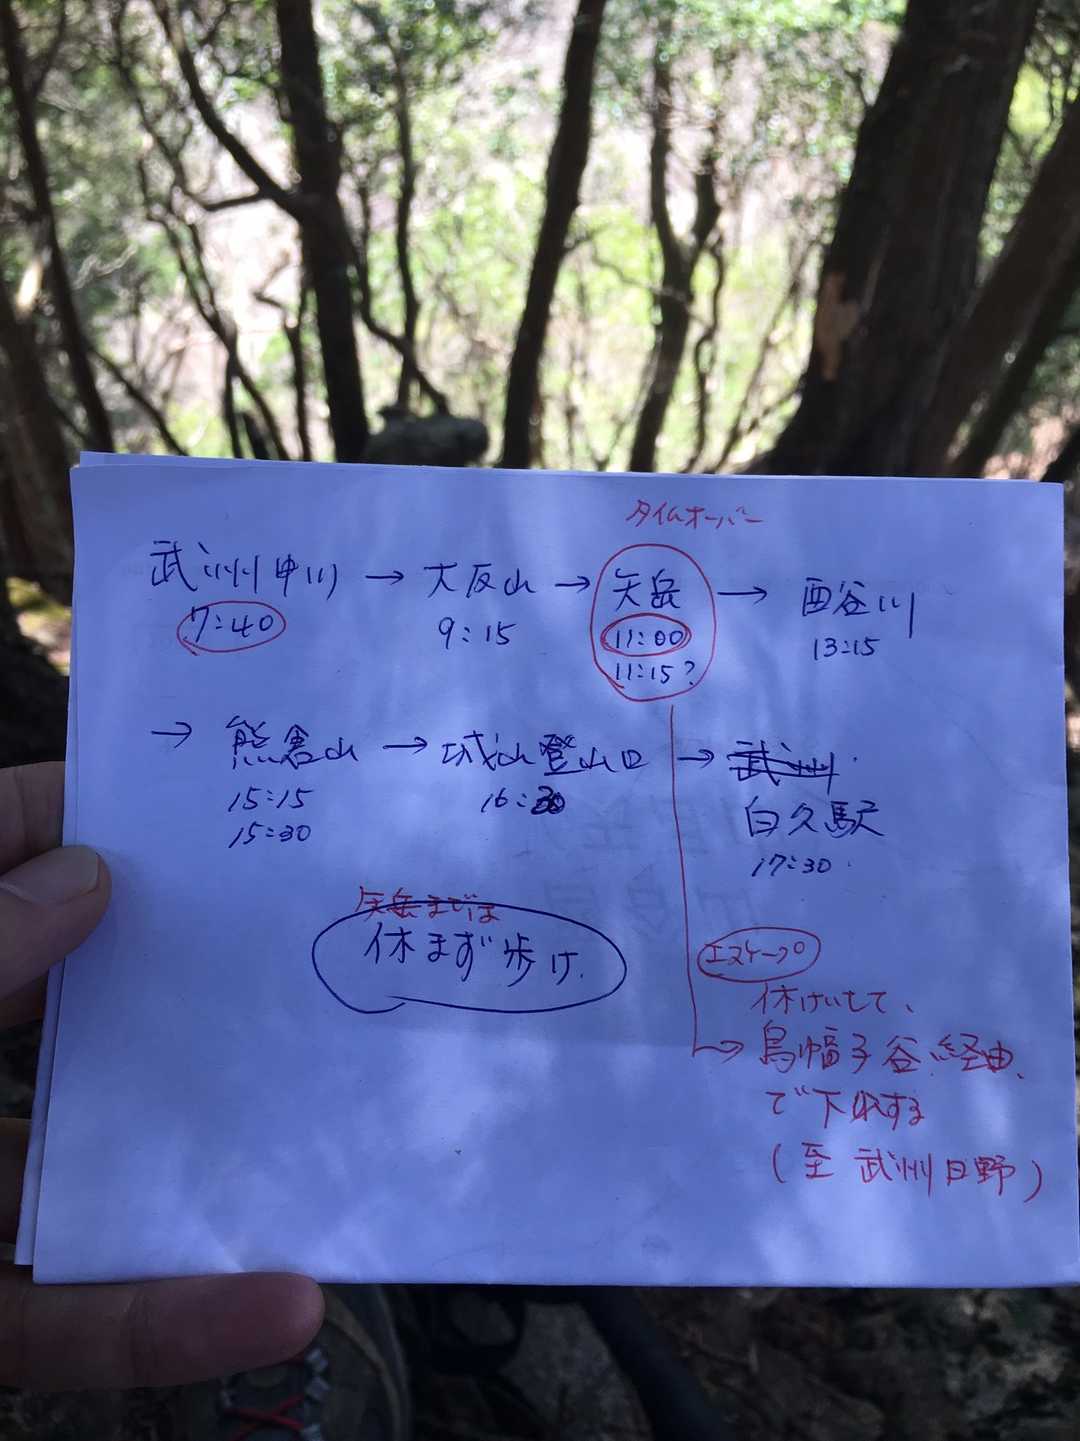 タイムオーバー
武州中川 → 大反山 → 矢岳 → 酉谷川
7:40 9:15 11:00 13:15
11:15?
→ 熊倉山 → 城山登山口 → 武州
15:15 16:30 白久駅
15:30 17:30
矢岳までは
休まず歩け.
エスケープ
休けいして、
→ 烏帽子谷経由
で下山する
(至 武州日野)